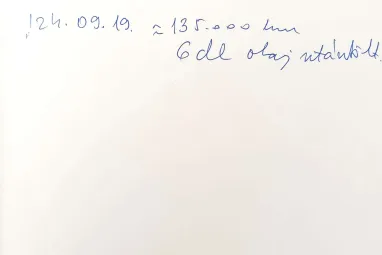 '24. 09. 19. ≈ 135.000 km
6 dl olaj utántölt.